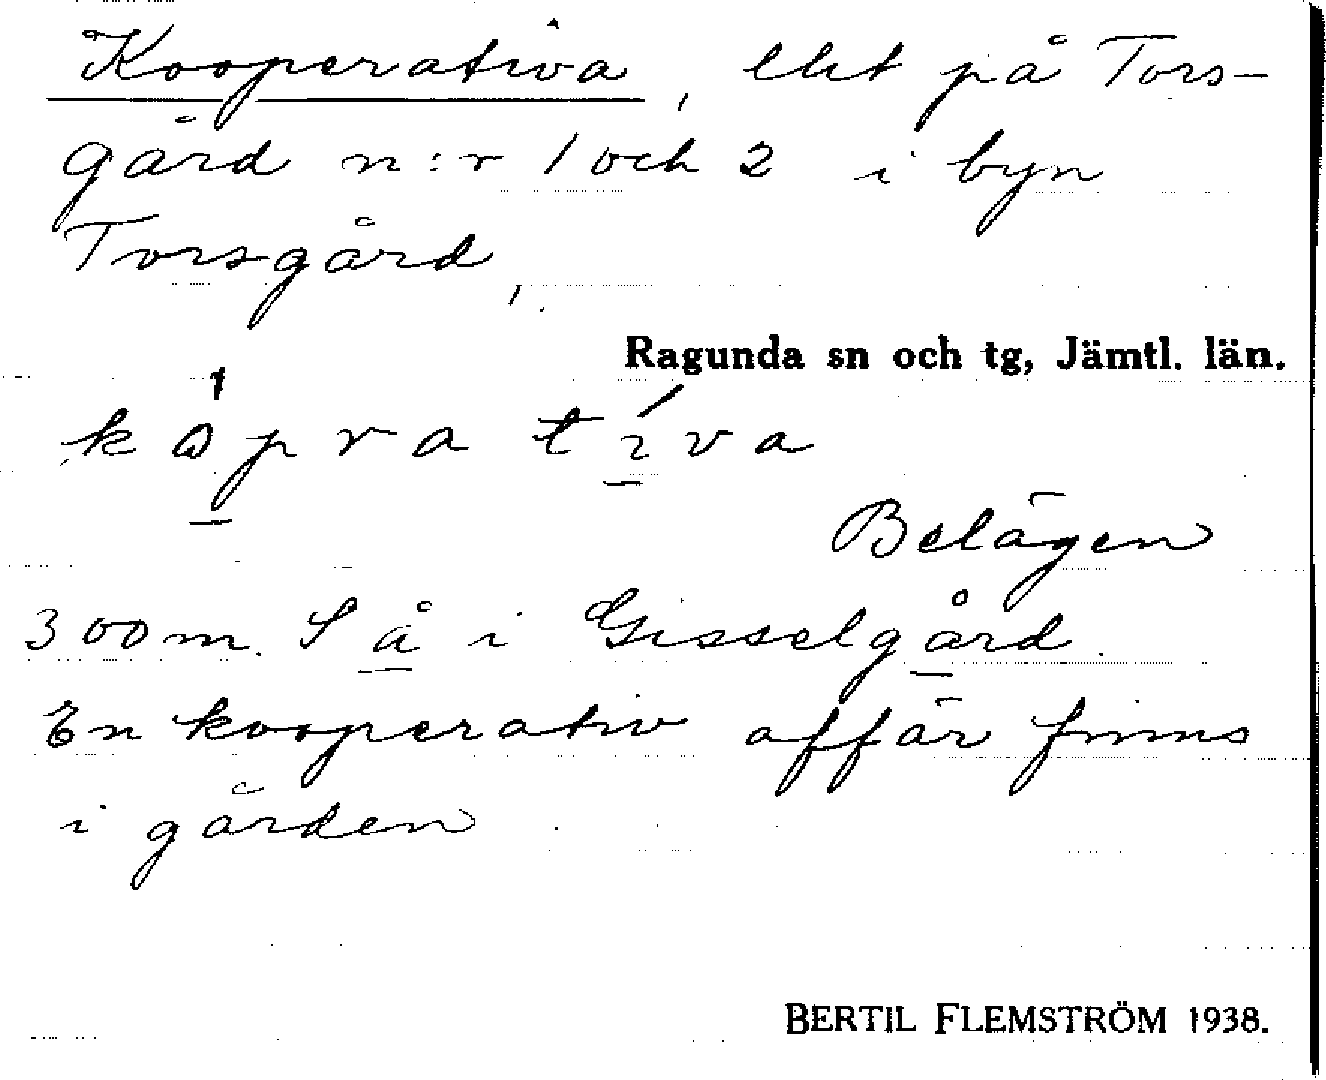 Kooperativa, lht på Tors-
gård n:r 1 och 2 i byn
Torsgård,
Ragunda sn och tg, Jämtl. län.
kópra tíva
Belägen
300 m. S å i Gisselgård.
En kooperativ affär finns
i gården.
BERTIL FLEMSTRÖM 1938.